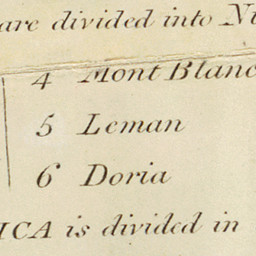 are divided into
4 Mont Blanc
5 Leman
6 Doria
ICA is divided in